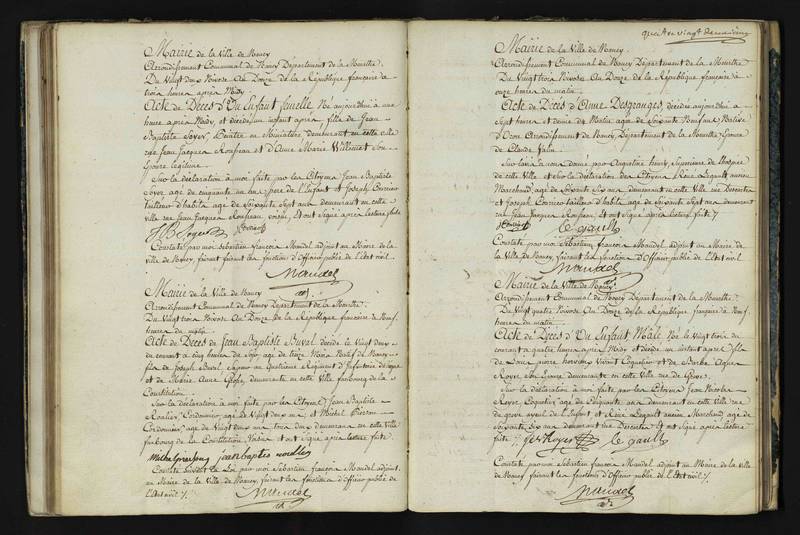 Mairie de la Ville de Nancy
Arrondissement Communal de Nancy Département de la Meurthe
Du Vingt deux Nivose An Douze de la République francaise à
trois heures après Midy
Acte de Décès d'Un Enfant femelle Né aujourd'hui à une
heure après Midy, et décédé un instant après fille de Jean
Baptiste Soyer, Peintre en Miniature demeurant en cette ville
rue Jean Jacques Rousseau et d'Anne Marie Willemet Son
Epouse légitime.
Sur la déclaration à moi faite par les Citoyens Jean Baptiste
Soyer agé de cinquante un ans, père de l'Enfant et Joseph
Tailleur d'habits agé de Soixante Sept ans demeurant en cette
ville rue Jean Jacques Rousseau voisin, et ont Signé après lecture faite
Constaté par moi Sébastien françois Mandel adjoint au Maire de la
ville de Nancy, faisant les fonctions d'Officier public de l'Etat civil.
Mandel
Mairie de la Ville de Nancy
Arrondissement Communal de Nancy Département de la Meurthe.
Du Vingt trois Nivose An Douze de la République francaise à Neuf
heures du matin
Acte de Décès de Jean Baptiste Buret décédé le Vingt deux
du courant à cinq heures du Soir agé de treize Mois Natif de Nancy
fils de Joseph Buret, Sapeur au Quatrième Régiment d'Infanterie
et de Marie Anne demeurante en cette Ville faubourg de la
Constitution.
Sur la déclaration à moi faite par les Citoyens Jean Baptiste
Cordonnier, agé de Vingt deux ans, et Michel
Cordonnier, agé de Vingt deux ans tous deux demeurans en cette ville
faubourg de la Constitution Voisin et ont Signé après lecture faite.
jean baptiste
Constaté Suivant la Loi par moi Sébastien françois Mandel adjoint
au Maire de la Ville de Nancy, faisant les fonctions d'Officier public de
l'Etat civil ./.
Mandel
quatre vingt
Mairie de la Ville de Nancy.
Arrondissement Communal de Nancy Département de la Meurthe
Du Vingt trois Nivose An Douze de la République francaise à
onze heures du matin
Acte de Décès d'Anne Desgranges, décédée aujourd'hui à
Sept heures et demie du Matin agée de Soixante
Arrondissement de Nancy, Département de la Meurthe
de Claude
Sur l'avis à nous donné par Augustine henry, Supérieure de l'hospice
de cette Ville et Sur la déclaration des Citoyens Réné Legault ancien
Marchand, agé de Soixante Six ans demeurant en cette Ville rue
et Joseph tailleur d'habits agé de Soixante Sept ans demeurant
rue Jean Jacques Rousseau. Et ont Signé après lecture faite ./.
Le gault
Constaté par moi Sébastien françois Mandel adjoint au Maire de la
Ville de Nancy, faisant les fonctions d'Officier public de l'Etat civil
Mandel
Mairie de la Ville de Nancy.
Arrondissement Communal de Nancy Département de la Meurthe.
Du Vingt quatre Nivose An Douze de la République francaise à Neuf
heures du matin
Acte de Décès d'Un Enfant Mâle Né le Vingt trois du
courant à quatre heures après Midy et décédé un instant après fils
de Vivant Coquetier et de Barbe
Royer Son Epouse demeurante en cette Ville rue de Grève.
Sur la déclaration à moi faite par les Citoyens Jean Nicolas
Royer Coquetier, agé de Cinquante ans demeurant en cette Ville rue
de grève ayeul de l'Enfant et Réné Legault ancien Marchand agé de
Soixante Six ans demeurant rue et ont Signé après lecture
faite ./. Royer Le gault
Constaté par moi Sébastien françois Mandel, adjoint au Maire de la Ville
de Nancy faisant les fonctions d'Officier public de l'Etat civil ./.
Mandel